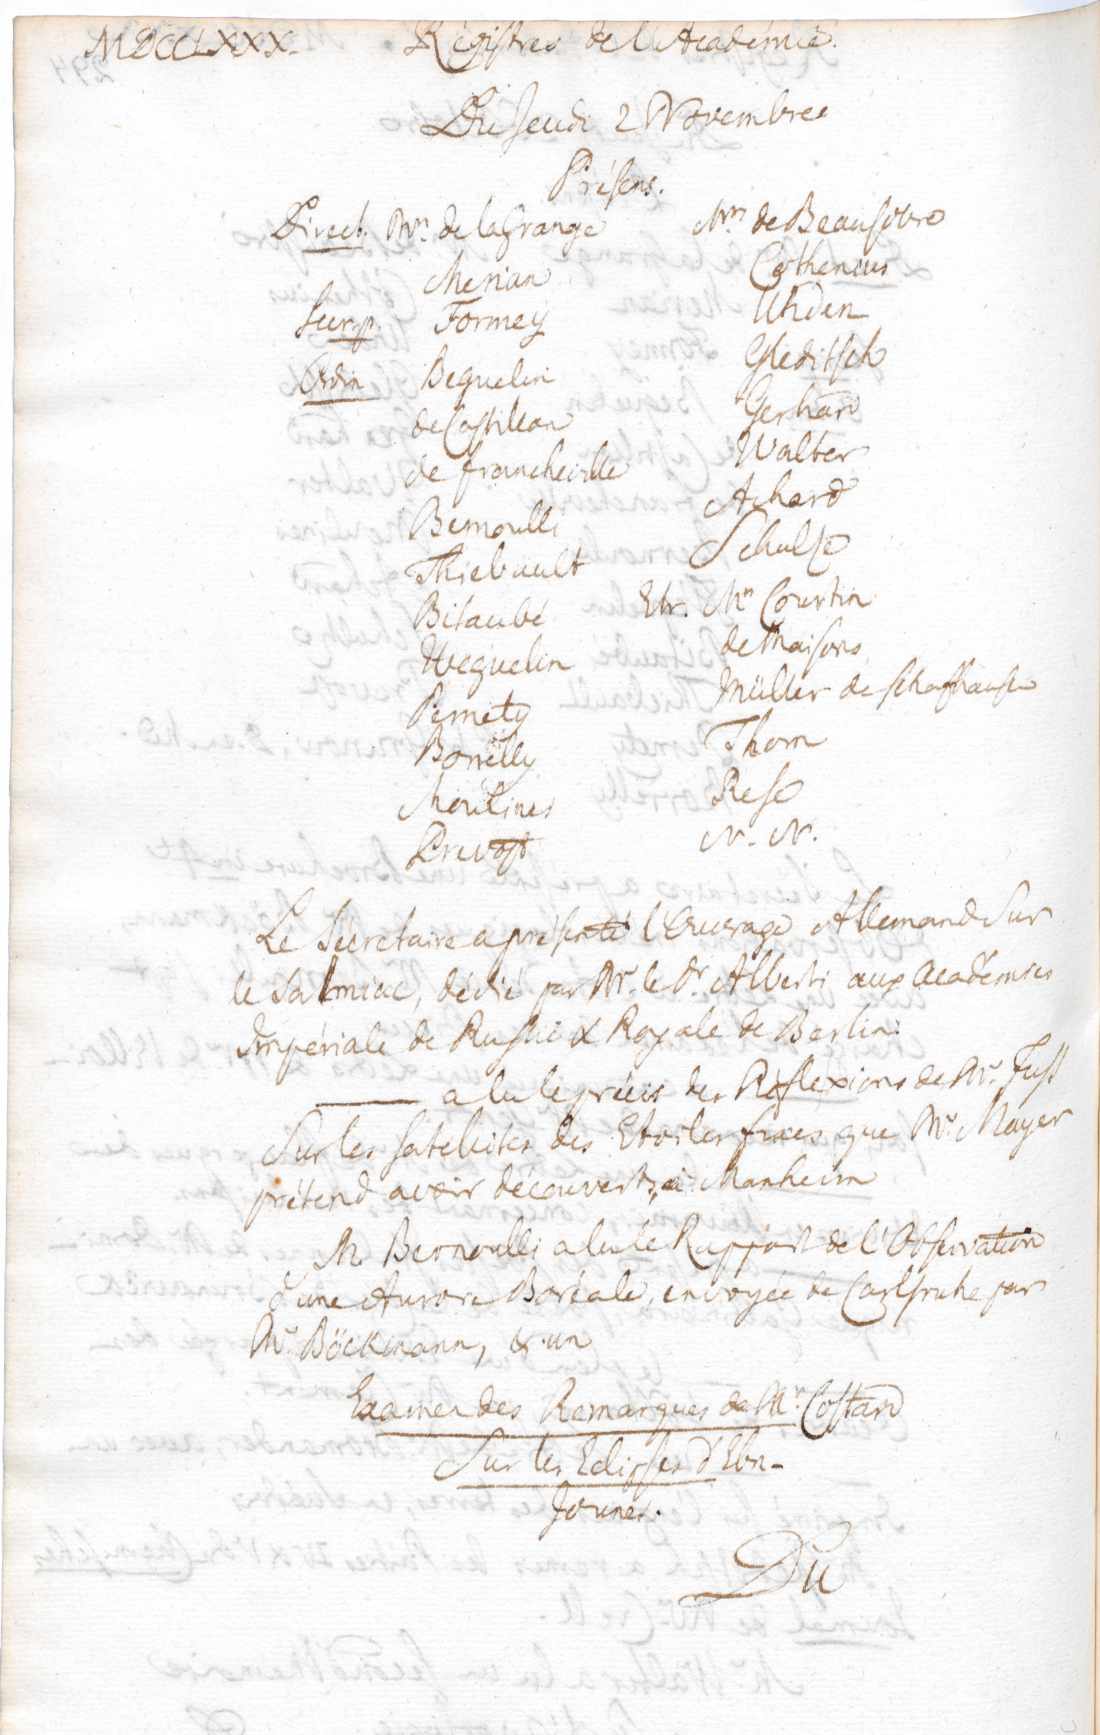 MDCCLXXX. Régistres de l'Académie.
Du Jeudi 2 Novembre
Présens.
Direct. Mrs. de la Grange
Merian
Secr. p. Formey
Ordin Beguelin
de Castillon
de Francheville
Bernoulli
Thiebault
Bitaubé
Weguelin
Pernety
Borrelly
Moulines
Prevost
Mrs. de Beausobre
Cothenius
Uhden
Gleditsch
Gerhard
Walter
Achard
Schulze
Etr. Mrs Courtin
de Maisons
Müller de Schaffhause
Thorn
Rese
N. N.
Le Secretaire a présenté l'Ouvrage Allemand sur
le Salmiac, dédié par Mr. le Dr. Alberti aux Académies
Impériale de Russie & Royale de Berlin.
——— a lu le précis des Réflexions de Mr. Fuss
sur les satellites des Etoiles fixes que Mr. Mayer
prétend avoir découverts à Manheim
M. Bernoulli a lu le Rapport de l'Observation
d'une Aurore Boréale, envoyée de Carlsruhe par
Mr. Böckmann, & un
Examen des Remarques de Mr. Costard
sur les Eclipses d'Ebn-
Jounes.
Du